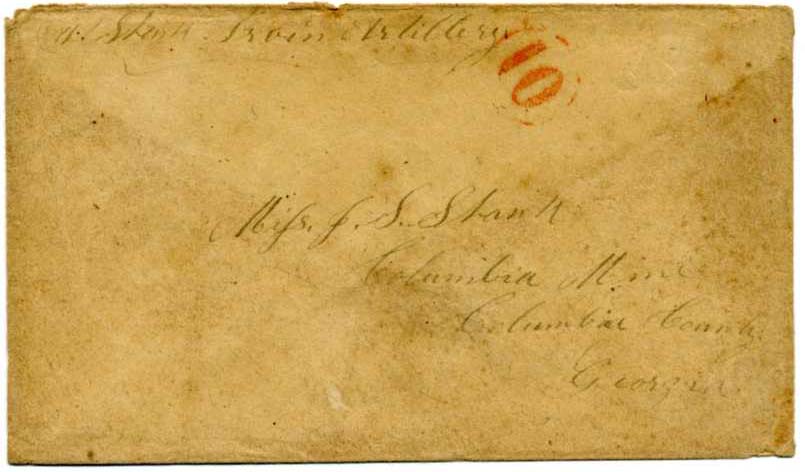 Irvin Artillery
10
Miss. J. S. Shank
Columbia Mine
Columbia County.
Georgia.